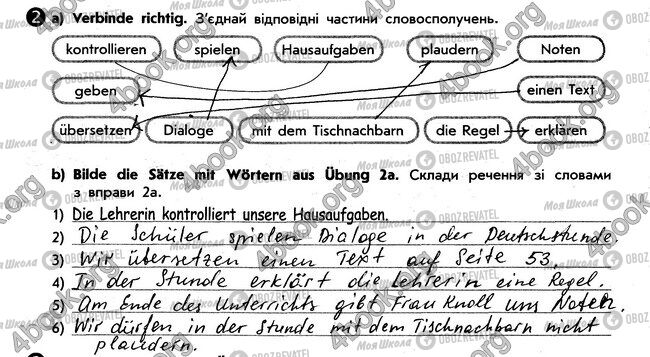 2 a) Verbinde richtig. З'єднай відповідні частини словосполучень.
kontrollieren spielen Hausaufgaben plaudern Noten
geben einen Text
übersetzen Dialoge mit dem Tischnachbarn die Regel erklären
b) Bilde die Sätze mit Wörtern aus Übung 2a. Склади речення зі словами
з вправи 2a.
1) Die Lehrerin kontrolliert unsere Hausaufgaben.
2) Die Schüler spielen Dialoge in der Deutschstunde.
3) Wir übersetzen einen Text auf Seite 53.
4) In der Stunde erklärt die Lehrerin eine Regel.
5) Am Ende des Unterrichts gibt Frau Knoll uns Noten.
6) Wir dürfen in der Stunde mit dem Tischnachbarn nicht
plaudern.
4book.org
Моя Школа
OBOZREVATEL